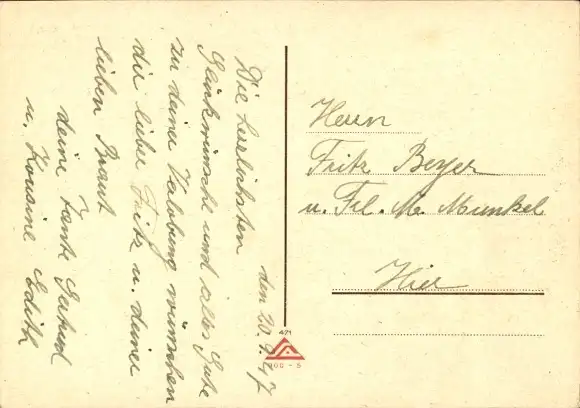 den 20.9.47
Die herzlichsten
Glückwünsche und alles Gute
zu deiner Verlobung wünschen
dir lieber Fritz u. deiner
lieben Braut
deine Tante Gertrud
u. Kousine Edith
Herrn
Fritz Beyer
u. Frl. M. Munkel
Hier
421